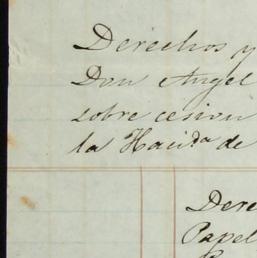 Derechos y
Don Angel
sobre cesion
la Hacida de
Dere
Papel